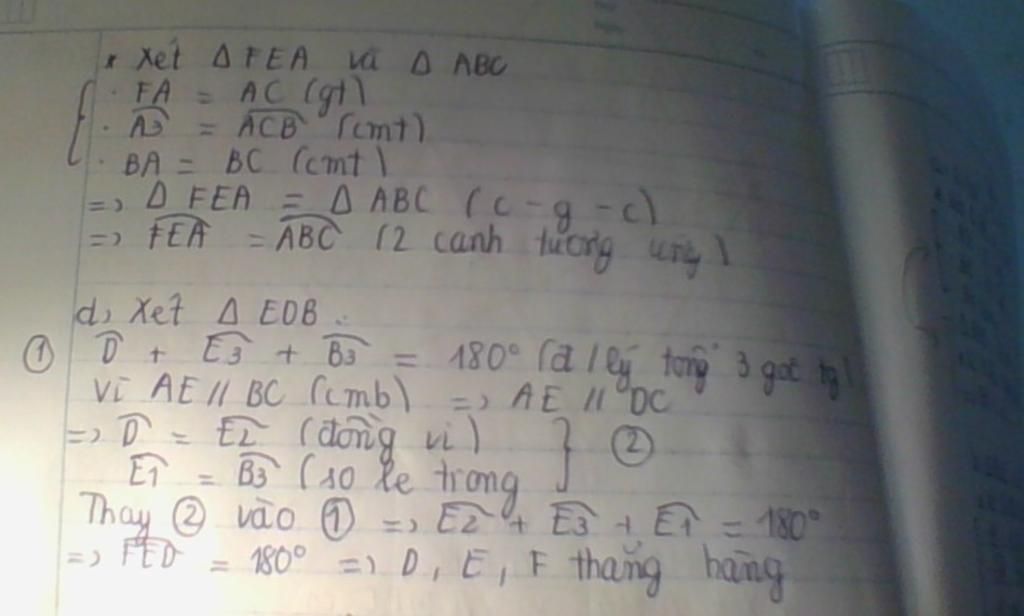 * Xét Δ FEA và Δ ABC
. FA = AC (gt)
. A3 = ACB (cmt)
. BA = BC (cmt)
=> Δ FEA = Δ ABC (c-g-c)
=> FEA = ABC (2 canh tương ứng)
d, Xét Δ EDB :
① D + E3 + B3 = 180° (đ/lý tổng 3 goc tg)
Vì AE // BC (cmb) => AE // DC
=> D = E2 (đồng vi) } ②
E1 = B3 (so le trong
Thay ② vào ① => E2 + E3 + E1 = 180°
=> FED = 180° => D, E, F thẳng hàng